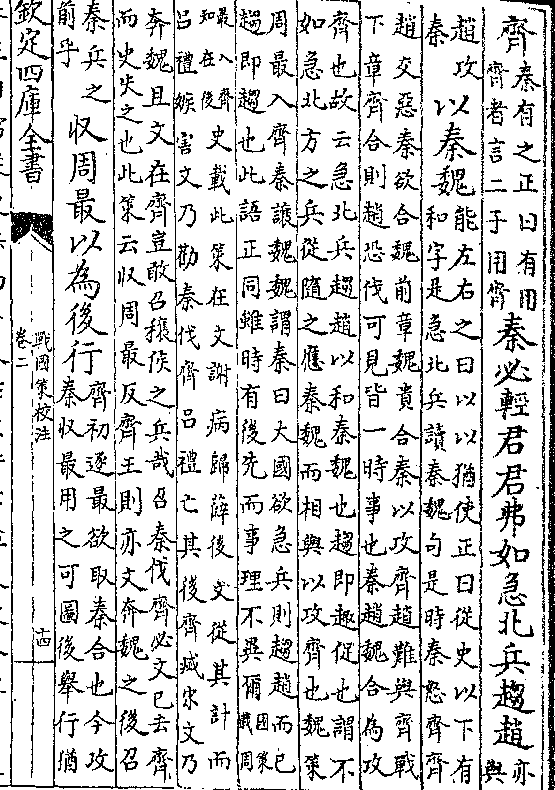 齊秦有之正曰有用
齊者言二子用齊
秦必輕君君弗如急北兵趨趙亦
與
趙攻
秦
以秦魏能左右之曰以以猶使正曰從史以下有
和字是急北兵讀秦魏句是時秦怒齊齊
趙交惡秦欲合魏前章魏貴合秦以攻齊趙難與齊戰
下章齊合則趙恐伐可見皆一時事也秦趙魏合為攻
齊也故云急北兵趨趙以和秦魏也趨即趣促也謂不
如急北方之兵從隨之應秦魏而相與以攻齊也魏策
周最入齊秦讓魏魏謂秦曰大國欲急兵則趨趙而已
趨即趨也此語正同雖時有後先而事理不異爾國策
載周
最入齊
知在後
史載此策在文謝病歸薛後文從其計而
呂禮嫉害文乃勸秦伐齊呂禮亡其後齊滅宋文乃
奔魏且文在齊豈敢召穰侯之兵哉召秦伐齊必文已去齊
而史失之也此策云収周最反齊王則亦文奔魏之後召
秦兵之
前乎
収周最以為後行齊初逐最欲取秦合也今攻
秦収最用之可圖後舉行猶
欽定四庫全書
戰國策校注
卷二
十四